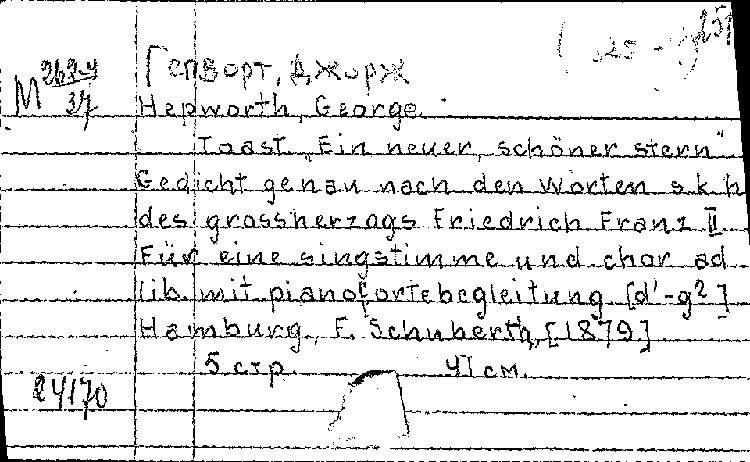 251
М 262-4
37
Гепворт, Джорж
Hepworth, George.
Toast „Ein neuer, schöner stern"
Gedicht genau nach den Worten s.k.h
des grossherzogs Friedrich Franz II
Für eine singstimme und chor ad
lib. mit pianofortebegleitung [d'-g²]
Hamburg, F. Schuberth, [1879]
5 стр. 41 см.
24170